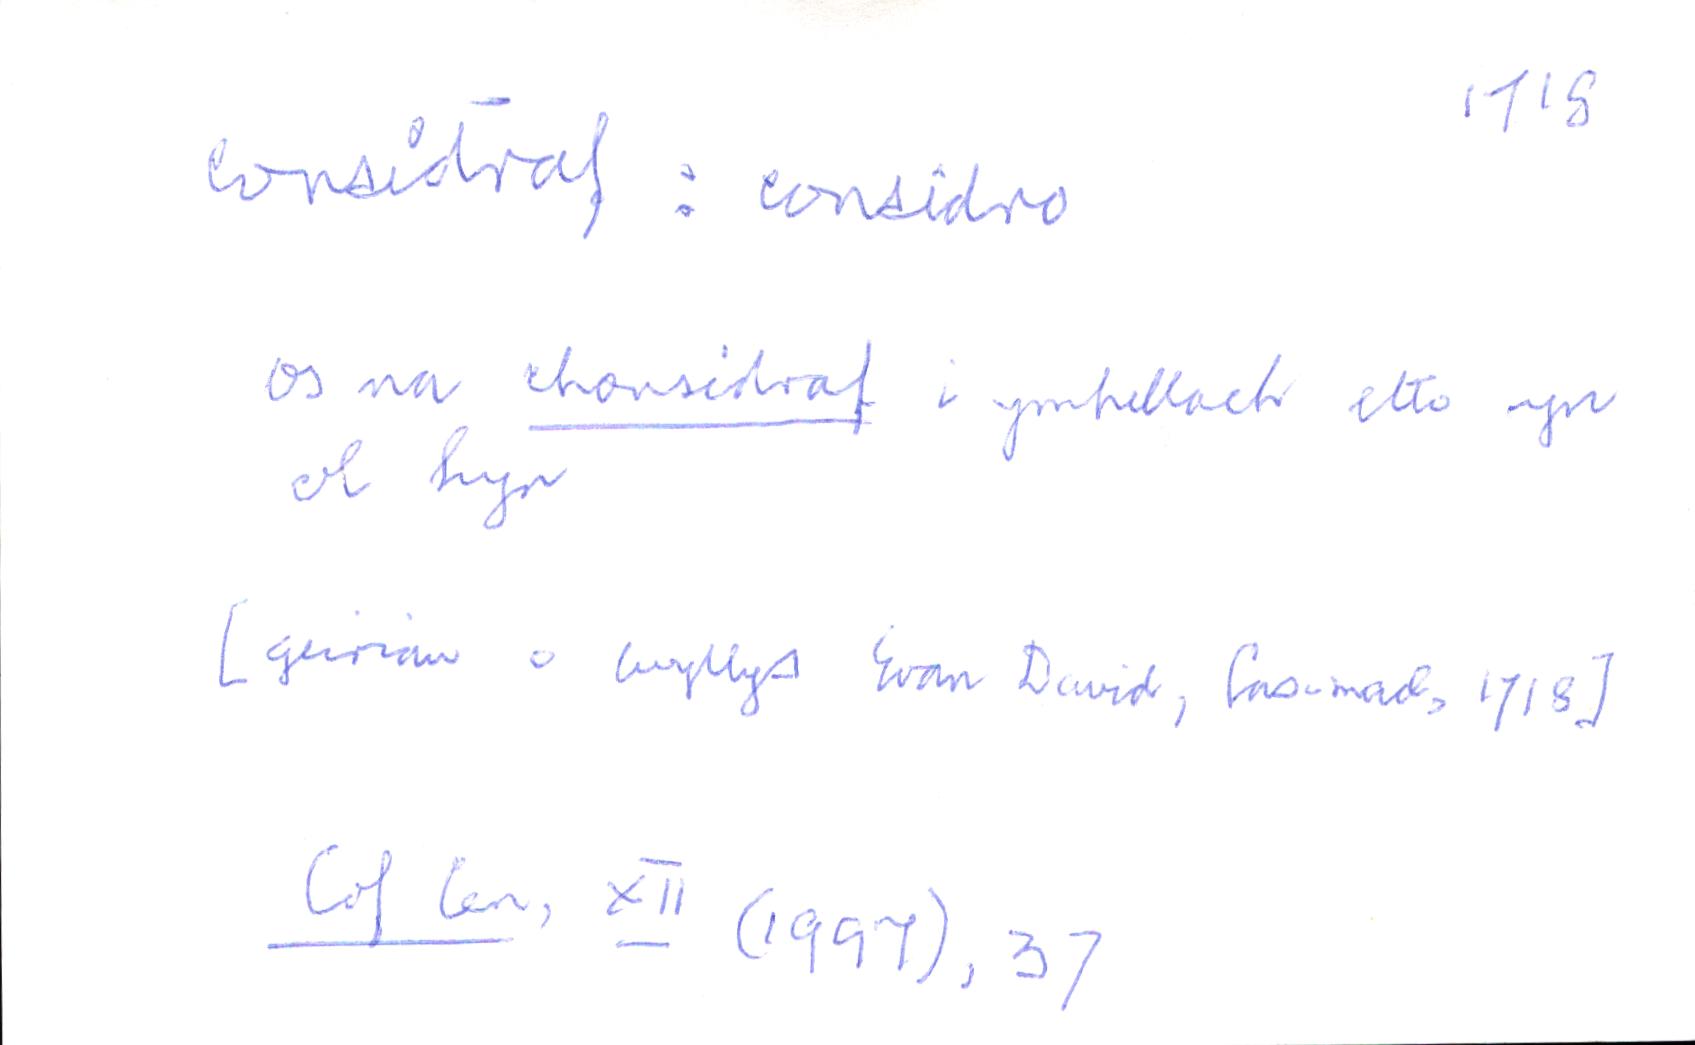 1718
considraf : considro
os na chonsidraf i ymhellach etto yn
ol hyn
[geiriau o ewyllys Evan David, 1718]
Cof Cen, XII (1997), 37